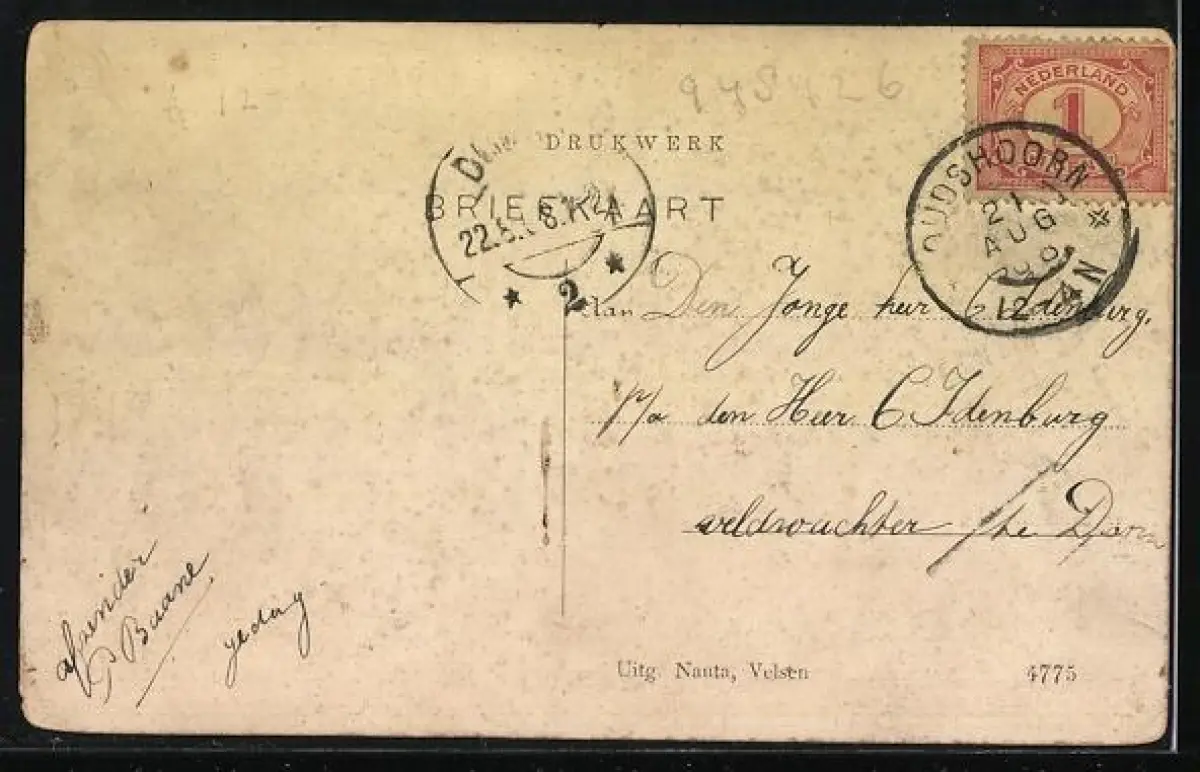 948426
A 12
NEDERLAND
1
DRUKWERK
BRIEFKAART
OUDSHOORN
21
AUG
12
AN
22.8.
8.
2
Aan Den Jonge heer C Idenburg.
p/a den Heer C Idenburg
veldwachter te
afzender
P Baane
Uitg. Nauta, Velsen
4775